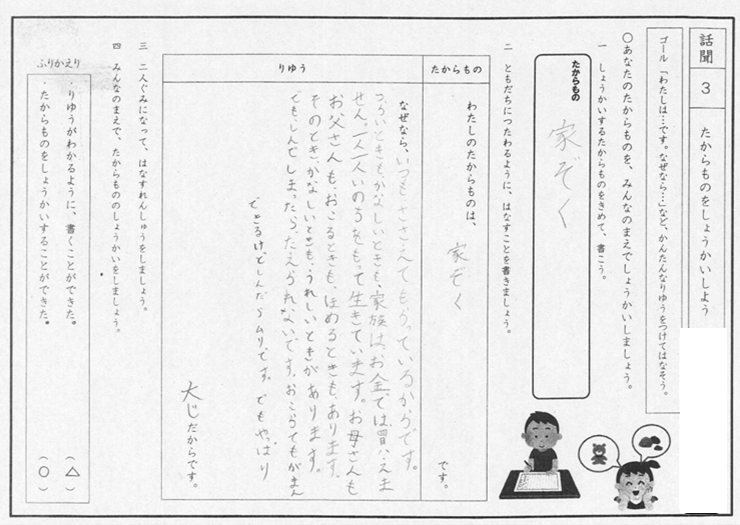 話聞 3 たからものをしょうかいしよう
ゴール 「わたしは…です。なぜなら…」など、かんたんなりゆうをつけてはなそう。
〇あなたのたからものを、みんなのまえでしょうかいしましょう。
一 しょうかいするたからものをきめて、書こう。
たからもの
家ぞく
二 ともだちにつたわるように、はなすことを書きましょう。
たからもの
わたしのたからものは、
家ぞく
です。
りゆう
なぜなら、いつもささえてもらっているからです。
つらいときも、かなしいときも、家族はお金では、買、えま
せん。一人一人いのちをもって生きています。お母さんも
お父さんも、おこるときも、ほめるときも、あります。
そのとき、かなしいときも、うれしいときがあります。
でも、しんでしまったら、たえられないです。おこらてもがまん
できるけど、しんだらムリです。でもやっぱり
大じだからです。
三 二人ぐみになって、はなすれんしゅうをしましょう。
四 みんなのまえで、たからもののしょうかいをしましょう。
ふりかえり
・りゆうがわかるように、書くことができた。 (△)
・たからものをしょうかいすることができた。 (〇)